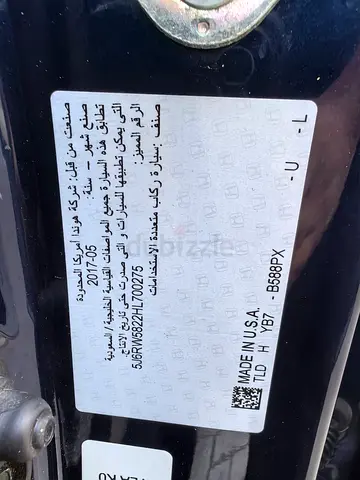 صنعت من قبل: شركة هوندا أمريكا المحدودة
صنع شهر - سنة: 2017-05
تطابق هذه السيارة جميع المواصفات القياسية الخليجية / السعودية
التي يمكن تطبيقها للسيارات و التي صدرت حتى تاريخ الانتاج.
الرقم المميز: 5J6RW5822HL700275
صنف: سيارة ركاب متعددة الاستخدامات
MADE IN U.S.A.
TLD H YB7 - B588PX - U - L
dubizzle